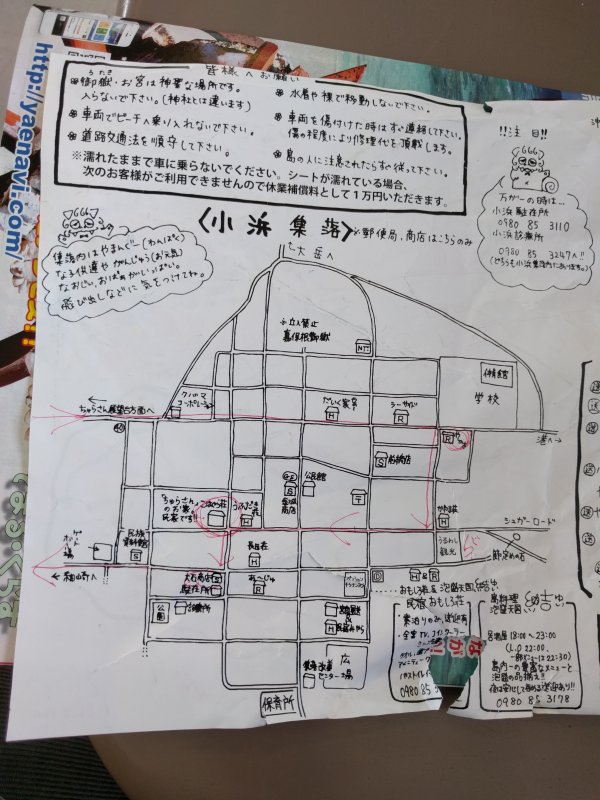 http://yaenavi.com/
皆様へお願い
うたき
御嶽・お宮は神聖な場所です。
入らないで下さい。(神社とは違います)
車両でビーチへ乗り入れないで下さい。
道路交通法を順守して下さい。
水着や裸で移動しないで下さい。
車両を傷付けた時はすぐ連絡して下さい。
傷の程度により修理代を頂戴します。
島の人に注意されたらすぐ従って下さい。
※濡れたままで車に乗らないでください。シートが濡れている場合、
次のお客様がご利用できませんので休業補償料として1万円いただきます。
!!注目!!
万が一の時は…
小浜駐在所
0980 85 3110
小浜診療所
0980 85 3247へ!!
(どちらも小浜集落内にあります。)
〈小浜集落〉
※郵便局、商店はこちらのみ
集落内はやまんぐー(わんぱく)
なる供達やがんじゅう(お元気)
なおじい、おばあがいっぱい。
飛び出しなどに気をつけてね。
大岳へ
※立入禁止
嘉保根御嶽
NTT
体育館
学校
ちゅらさん展望台方面へ
クハマ
コーポレーション
だいく家
H
シーサイド
R
R
港へ
S
公民館
S
商店
〒
「ちゅらさん」
のお家
民家です!!
こはぐら荘
うふだき荘
H
H
シュガーロード
民俗
資料館
S
細崎へ
長田荘
H
うるわし
観光
大石商店
駐在所
あ〜じゅ
R
D
H&R
公園
診療所
H
センター
広場
保育所
……おもしろ荘&泡盛天国 結吉ゆい
民宿おもろ荘
・素泊りのみ、送迎有
0980 85
島料理
泡盛天国
居酒屋 18:00〜23:00
(L.O 22:00、
島内一の豊富なメニューと
泡盛の品揃え!!
0980 85 3178